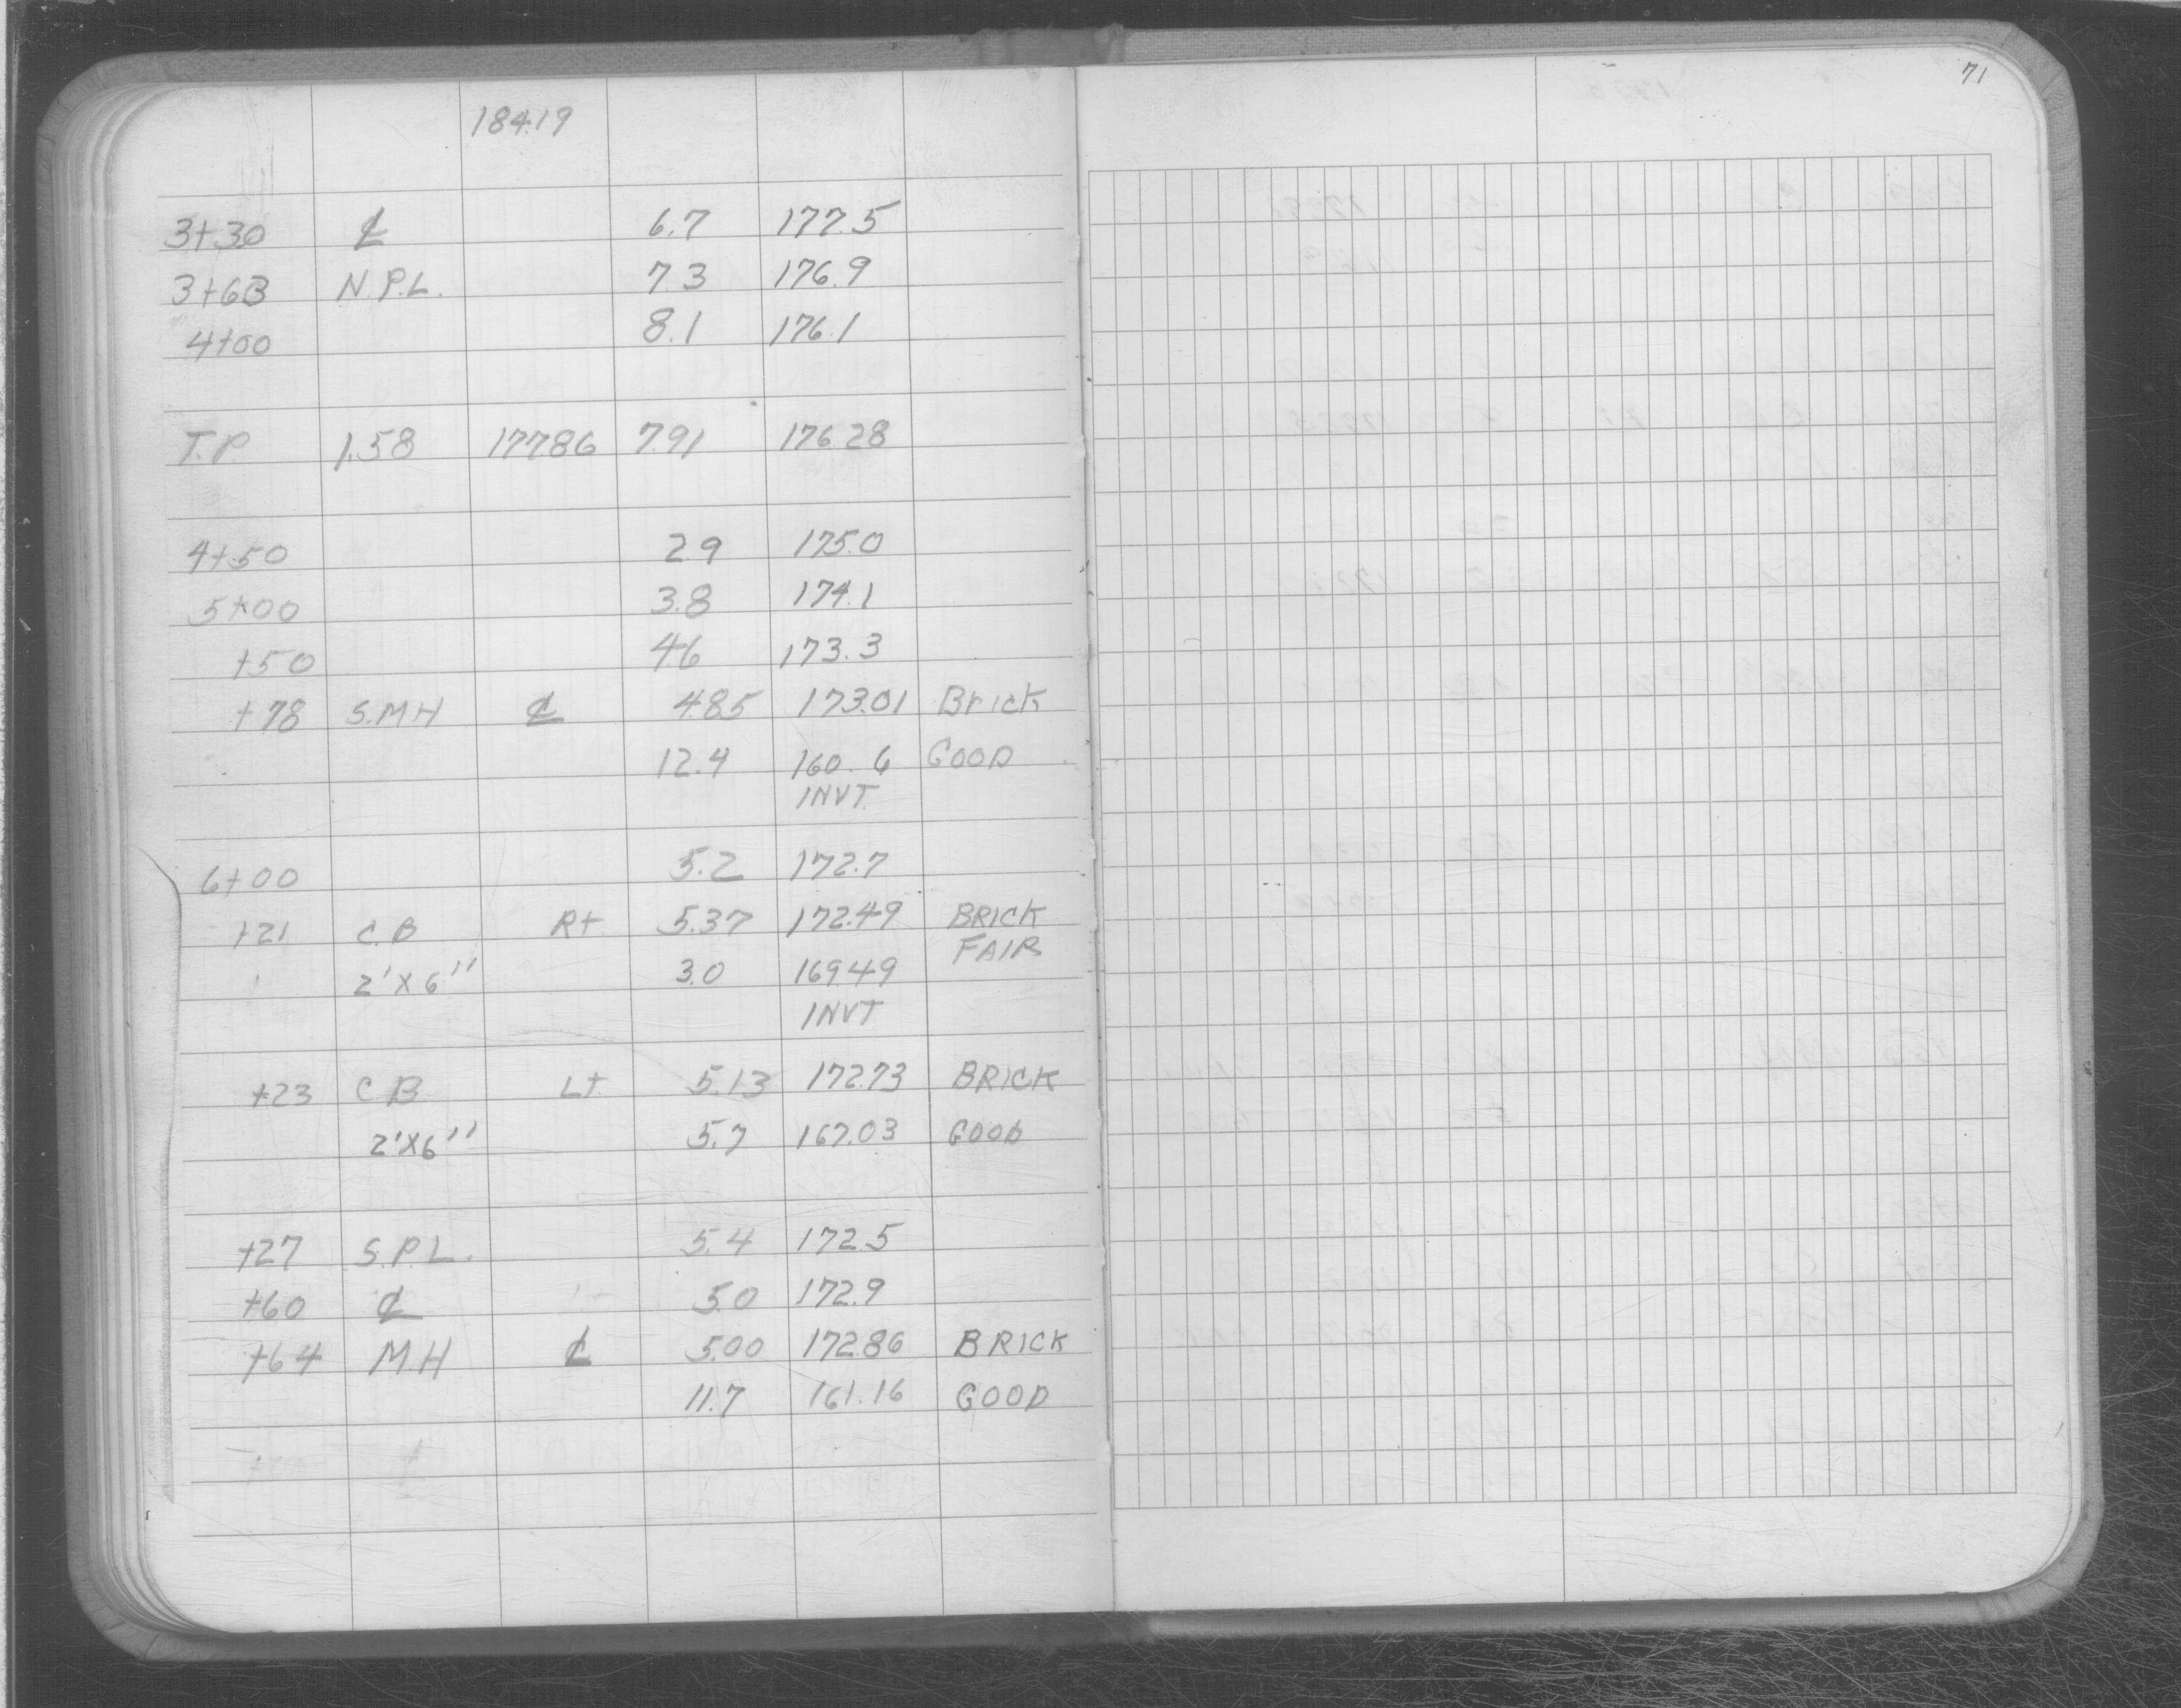 71
184.19
3+30 ℄ 6.7 177.5
3+63 N.P.L. 7.3 176.9
4+00 8.1 176.1
T.P. 1.58 177.86 7.91 176.28
4+50 2.9 175.0
5+00 3.8 174.1
+50 4.6 173.3
+78 S.MH ℄ 4.85 173.01 Brick
12.4 160.6 GOOD
INVT.
6+00 5.2 172.7
+21 C.B Rt. 5.37 172.49 BRICK
FAIR
2'X6" 3.0 169.49
INVT
+23 C B Lt 5.13 172.73 BRICK
2'X6" 5.7 167.03 GOOD
+27 S.P.L. 5.4 172.5
+60 ℄ 5.0 172.9
+64 MH ℄ 5.00 172.86 BRICK
11.7 161.16 GOOD